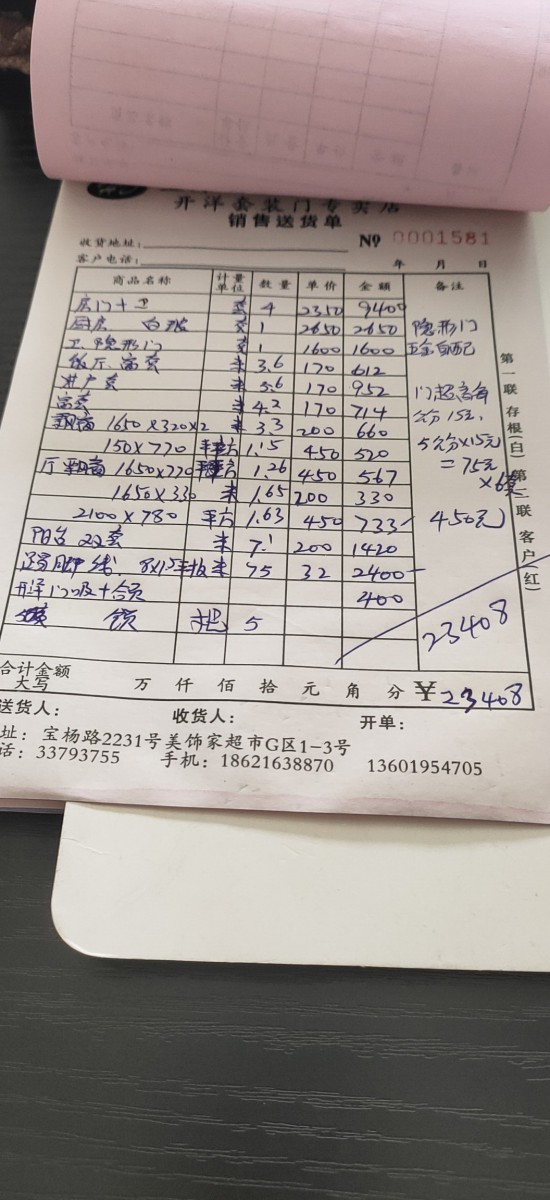 开洋套装门专卖店
销售送货单
收货地址: № 0001581
客户电话: 年 月 日
商品名称 计量单位 数量 单价 金额 备注
房门+卫 套 4 2350 9400
厨房 白玻 套 1 2650 2650 隐形门
卫 隐形门 套 1 1600 1600 五金自配
饭厅 窗套 米 3.6 170 612
进户套 米 5.6 170 952 门超高每
窗套 米 4.2 170 714 公分15元,
飘窗 1650×320×2 米 3.3 200 660 5公分×15元
150×770 平方 1.15 450 520 =75元
厅飘窗 1650×770 平方 1.26 450 567 ×6套
1650×330 米 1.65 200 330
2100×780 平方 1.63 450 733 450元
阳台 双套 米 7.1 200 1420
脚线 米 75 32 2400
门吸+合页 400
锁 把 5
23408
合计金额大写 万 仟 佰 拾 元 角 分 ¥23408
送货人: 收货人: 开单:
址: 宝杨路2231号美饰家超市G区1-3号
话: 33793755 手机: 18621638870 13601954705
第一联 存根(白) 第二联 客户(红)